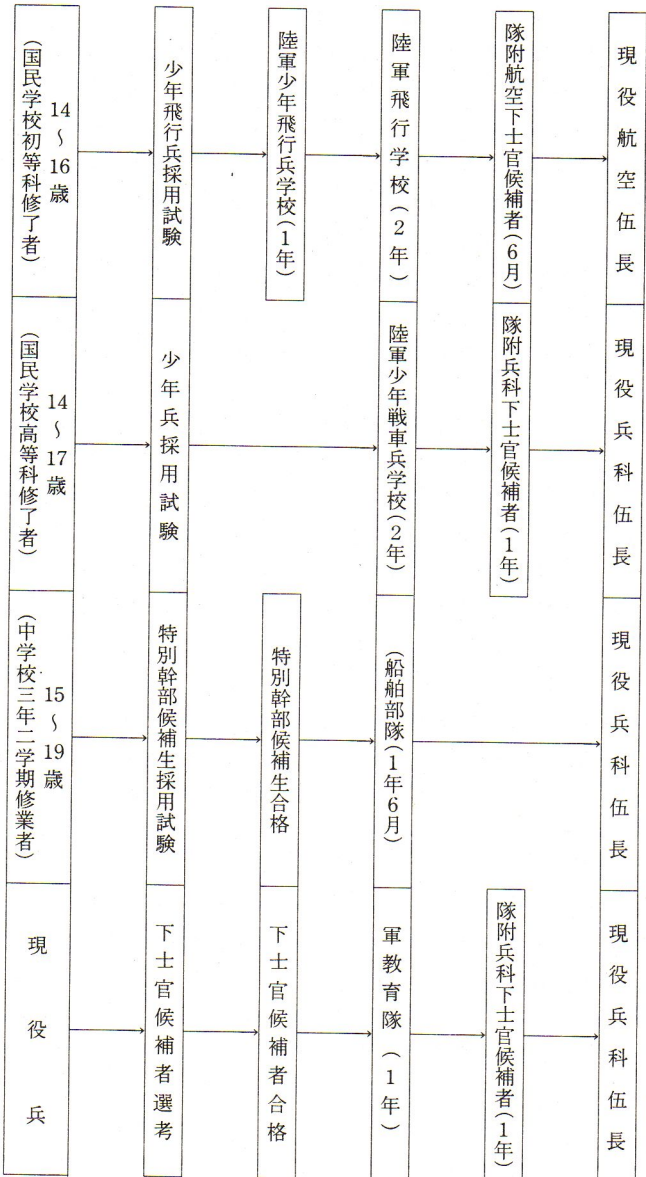 14〜16歳
(国民学校初等科修了者)
少年飛行兵採用試験
陸軍少年飛行兵学校(1年)
陸軍飛行学校(2年)
隊附航空下士官候補者(6月)
現役航空伍長
14〜17歳
(国民学校高等科修了者)
少年兵採用試験
陸軍少年戦車兵学校(2年)
隊附兵科下士官候補者(1年)
現役兵科伍長
15〜19歳
(中学校三年二学期修業者)
特別幹部候補生採用試験
特別幹部候補生合格
(船舶部隊(1年6月)
現役兵科伍長
現役兵
下士官候補者選考
下士官候補者合格
軍教育隊(1年)
隊附兵科下士官候補者(1年)
現役兵科伍長